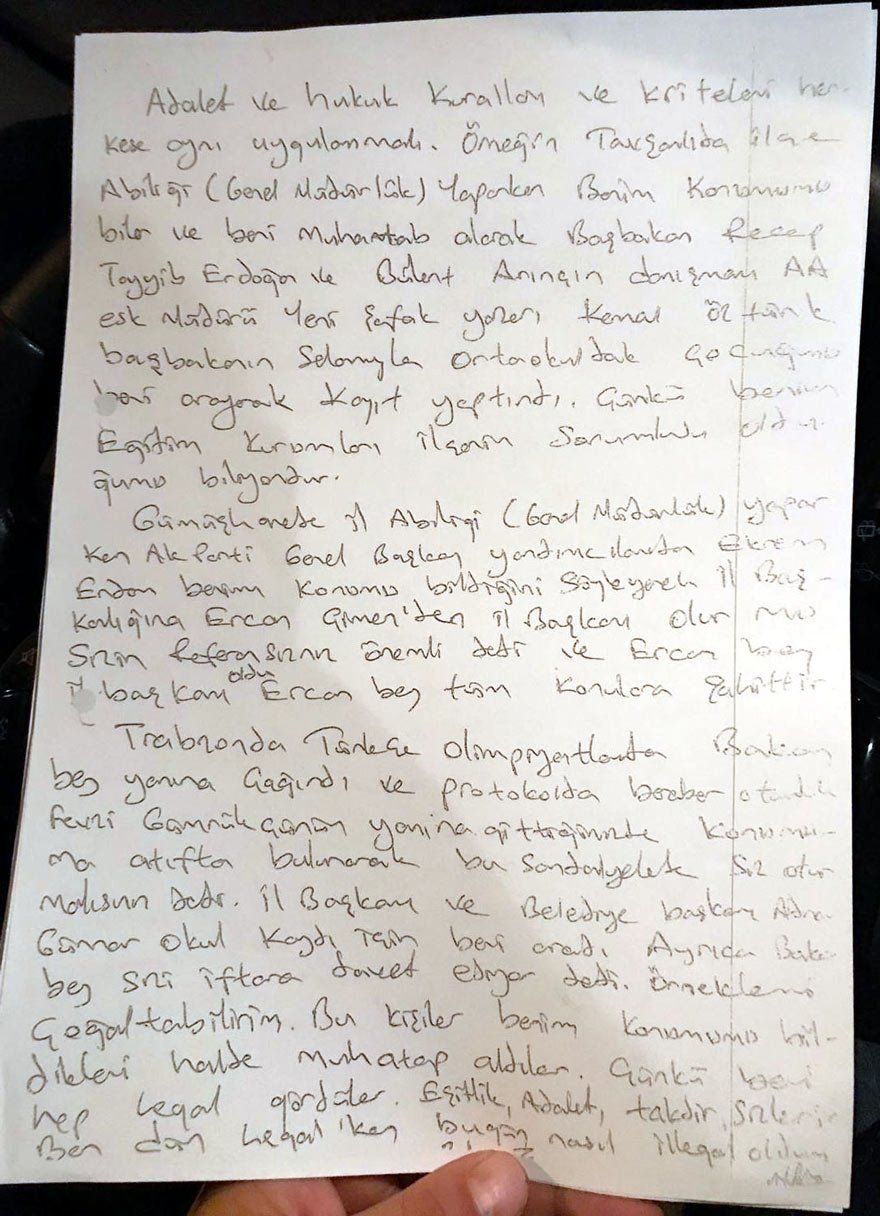 Adalet ve hukuk Kuralları ve kriteleri her-
kese aynı uygulanmalı. Örneğin Tavşanlıda ilçe
Abiliği (Genel Müdürlük) Yaparken Benim Konumumu
bilen ve beni Muhattab alarak Başbakan Recep
Tayyib Erdoğan ve Bülent Arınçın danışmanı AA
eski Müdürü Yeni Şafak yazarı Kemal Öztürk
başbakanın Selamıyla Ortaokuldaki çocuğunu
beni arayarak Kayıt yaptırdı. Çünkü benim
Eğitim Kurumları ilçenin Sorumlusu oldu-
ğumu biliyordur.
Gümüşhanede il Abiliği (Genel Müdürlük) yapar
ken Ak Parti Genel Başkan yardımcılarından Ekrem
Erdem benim Konumu bildiğini Söyleyerek İl Baş-
kanlığına Ercan Çimen'den il Başkanı Olur mu
Sizin Referansınız önemli dedi ve Ercan bey
il başkanı oldu Ercan bey tüm Konulara Şahittir
Trabzonda Türkçe olimpiyatlarında Bakan
bey yanına Çağırdı ve protokolda beraber oturduk
Fevzi Gümrükçünün yanına gittiğimizde Konumu-
ma atıfta bulunarak bu Sandalyelete Siz otur
malısınız dedi. İl Başkanı ve Belediye başkanı
okul Kaydı için beni aradı Ayrıca Bakan
bey Sizi iftara davet ediyor dedi. Örnekleri
Çoğaltabilirim. Bu Kişiler benim Konumumu bil-
dikleri halde Muhatap aldılar. Çünkü beni
hep Legal gördüler. Eşitlik, Adalet, takdir, Sizlerin
Ben dün Legal iken bugün nasıl illegal oldum